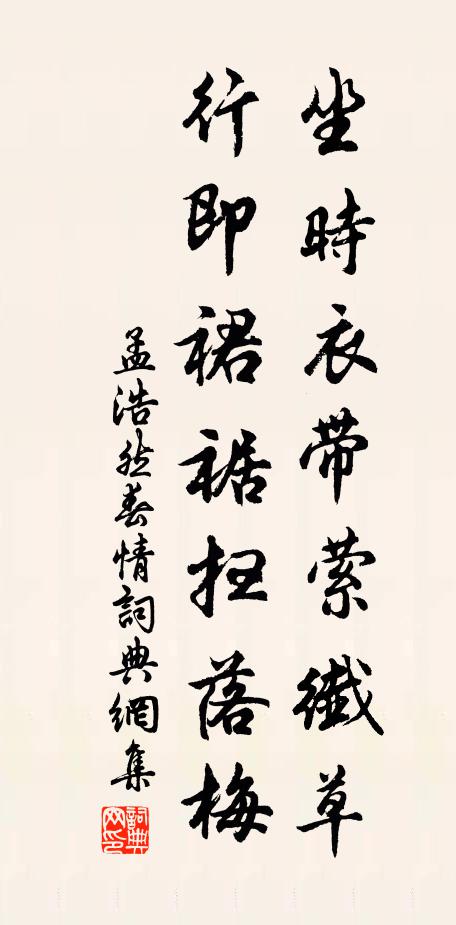 坐時衣帶縈纖草
行即裙裾掃落梅
孟浩然春情詞典網集
詞典網印